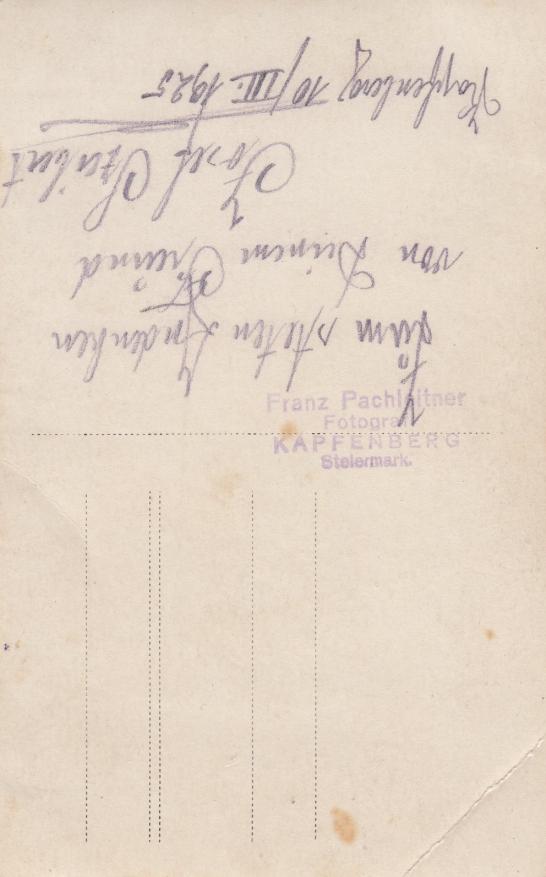 Zum steten Andenken
von Deinem Freund
Josef
Kapfenberg 10/III. 1925
Franz Pachleitner
Fotograf
KAPFENBERG
Steiermark.